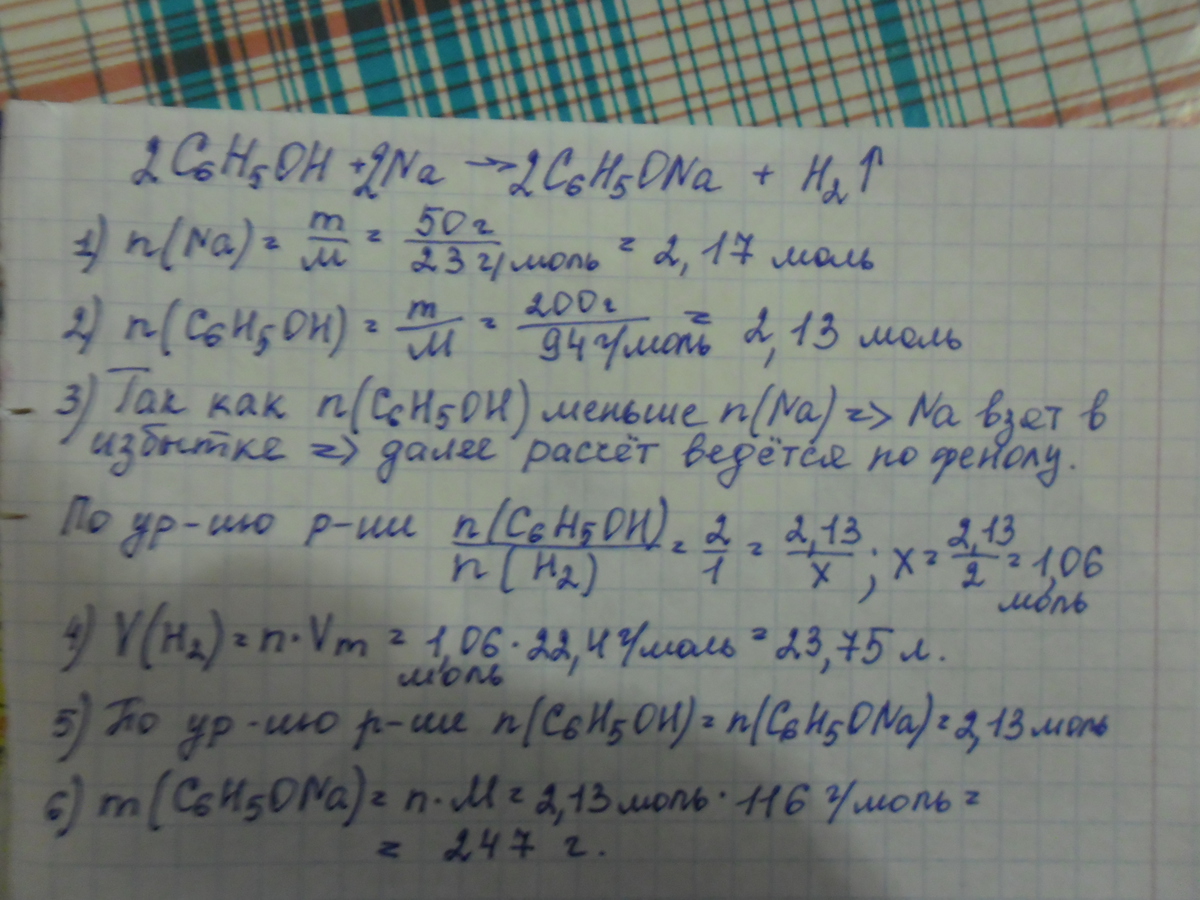 2C₆H₅OH + 2Na → 2C₆H₅ONa + H₂↑
1) n(Na) = m/M = 50г/23г/моль = 2,17 моль
2) n(C₆H₅OH) = m/M = 200г/94г/моль = 2,13 моль
3) Так как n(C₆H₅OH) меньше n(Na) => Na взят в
избытке => далее расчёт ведётся по фенолу.
По ур-ию р-ии n(C₆H₅OH)/n(H₂) = 2/1 = 2,13/x ; x = 2,13/2 = 1,06
моль
4) V(H₂) = n·Vm = 1,06·22,4г/моль = 23,75 л.
моль
5) По ур-ию р-ии n(C₆H₅OH) = n(C₆H₅ONa) = 2,13 моль
6) m(C₆H₅ONa) = n·M = 2,13 моль·116 г/моль =
= 247 г.